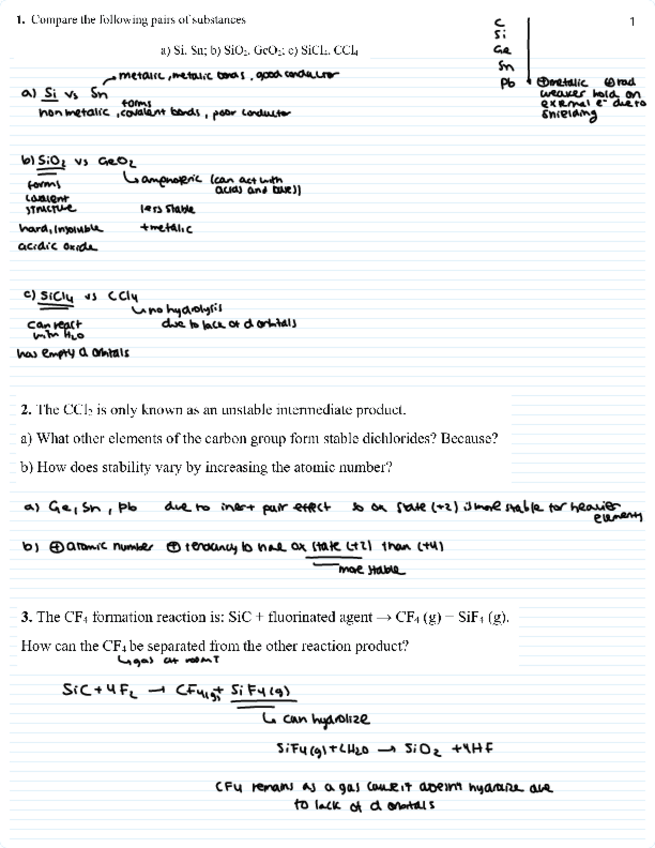 1. Compare the following pairs of substances
1
a) Si, Sn; b) SiO₂, GeO₂; c) SiCl₄, CCl₄
C
Si
Ge
Sn
Pb
⊕metalic ⊕rad
weaker hold on
external e⁻ due to
shielding
metalic, metalic bonds, good conductor
a) Si vs Sn
forms
non metalic, covalent bonds, poor conductor
b) SiO₂ vs GeO₂
forms
covalent
structure
hard, insoluble
acidic oxide
amphoteric (can act with
acids and bases)
less stable
+metalic
c) SiCl4 vs CCl4
can react
with H₂O
has empty d orbitals
no hydrolysis
due to lack of d orbitals
2. The CCl₂ is only known as an unstable intermediate product.
a) What other elements of the carbon group form stable dichlorides? Because?
b) How does stability vary by increasing the atomic number?
a) Ge, Sn, Pb due to inert pair effect so ox state (+2) is more stable for heavier
elements
b) ⊕atomic number ⊕ tendancy to have ox state (+2) than (+4)
more stable
3. The CF₄ formation reaction is: SiC + fluorinated agent → CF₄ (g) + SiF₄ (g).
How can the CF₄ be separated from the other reaction product?
gas at room T
SiC + 4F₂ → CF4(g) + SiF4(g)
can hydrolize
SiF4(g) + 2H2O → SiO₂ + 4HF
CF4 remains as a gas cause it doesn't hydrolize due
to lack of d orbitals